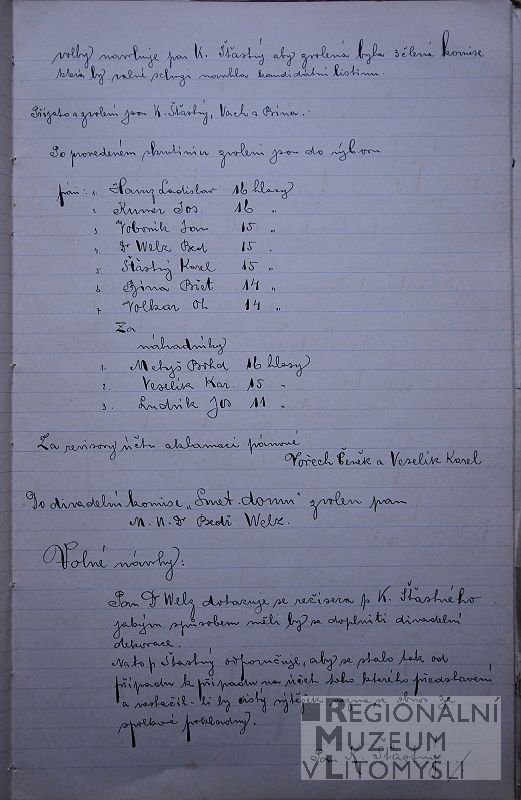 volby navrhuje pan K. Šťastný aby zvolena byla 3 člená komise
která by valné schůzi navrhla kandidátní listinu.
Přijato a zvoleni jsou K. Šťastný, Vach a Brina.
Po provedeném skrutiniu zvoleni jsou do výboru
pán: 1. Hainz Ladislav 16 hlasy
2. Kumer Jos. 16 „
3. Voborník Jan 15 „
4. Dr Welz Bed 15 .
5. Šťastný Karel 15 „
6. Břet 14 „
7. Volkar Ot. 14 „
Za
náhradníky
1. Metyš Bohd 16 hlasy
2. Veselík Kar. 15 „
3. Ludvík Jos 11 .
Za revisory účtu aklamací pánové
Vořech Čeněk a Veselík Karel
Do divadelní komise „Smet. domu“ zvolen pan
M. U. Dr Bedř Welz.
Volné návrhy:
Pan Dr Welz dotazuje se režisera p K. Šťastného
jakým způsobem měli by se doplniti divadelní
dekorace.
Na to p Šťastný odporučuje, aby se stalo tak od
případu k případu na účet toho kterého představení
a nestačil-li by čistý výtěžek se obnos ze
spolkové pokladny.
Pan K. Šťastný
REGIONÁLNÍ
MUZEUM
V LITOMYŠLI